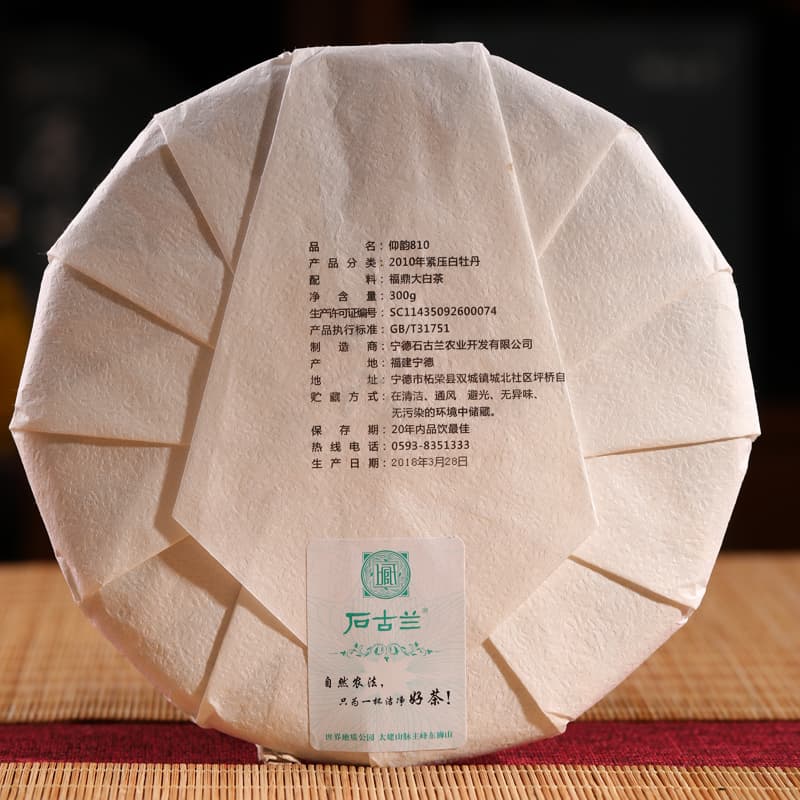 品名：仰韵810
产品分类：2010年紧压白牡丹
配料：福鼎大白茶
净含量：300g
生产许可证编号：SC11435092600074
产品执行标准：GB/T31751
制造商：宁德石古兰农业开发有限公司
产地：福建宁德
地址：宁德市柘荣县双城镇城北社区坪桥自
贮藏方式：在清洁、通风　避光、无异味、
无污染的环境中储藏。
保存期：20年内品饮最佳
热线电话：0593-8351333
生产日期：2018年3月28日
石古兰®
自然农法，
只为一杯洁净好茶！
世界地质公园 太姥山脉主峰东狮山